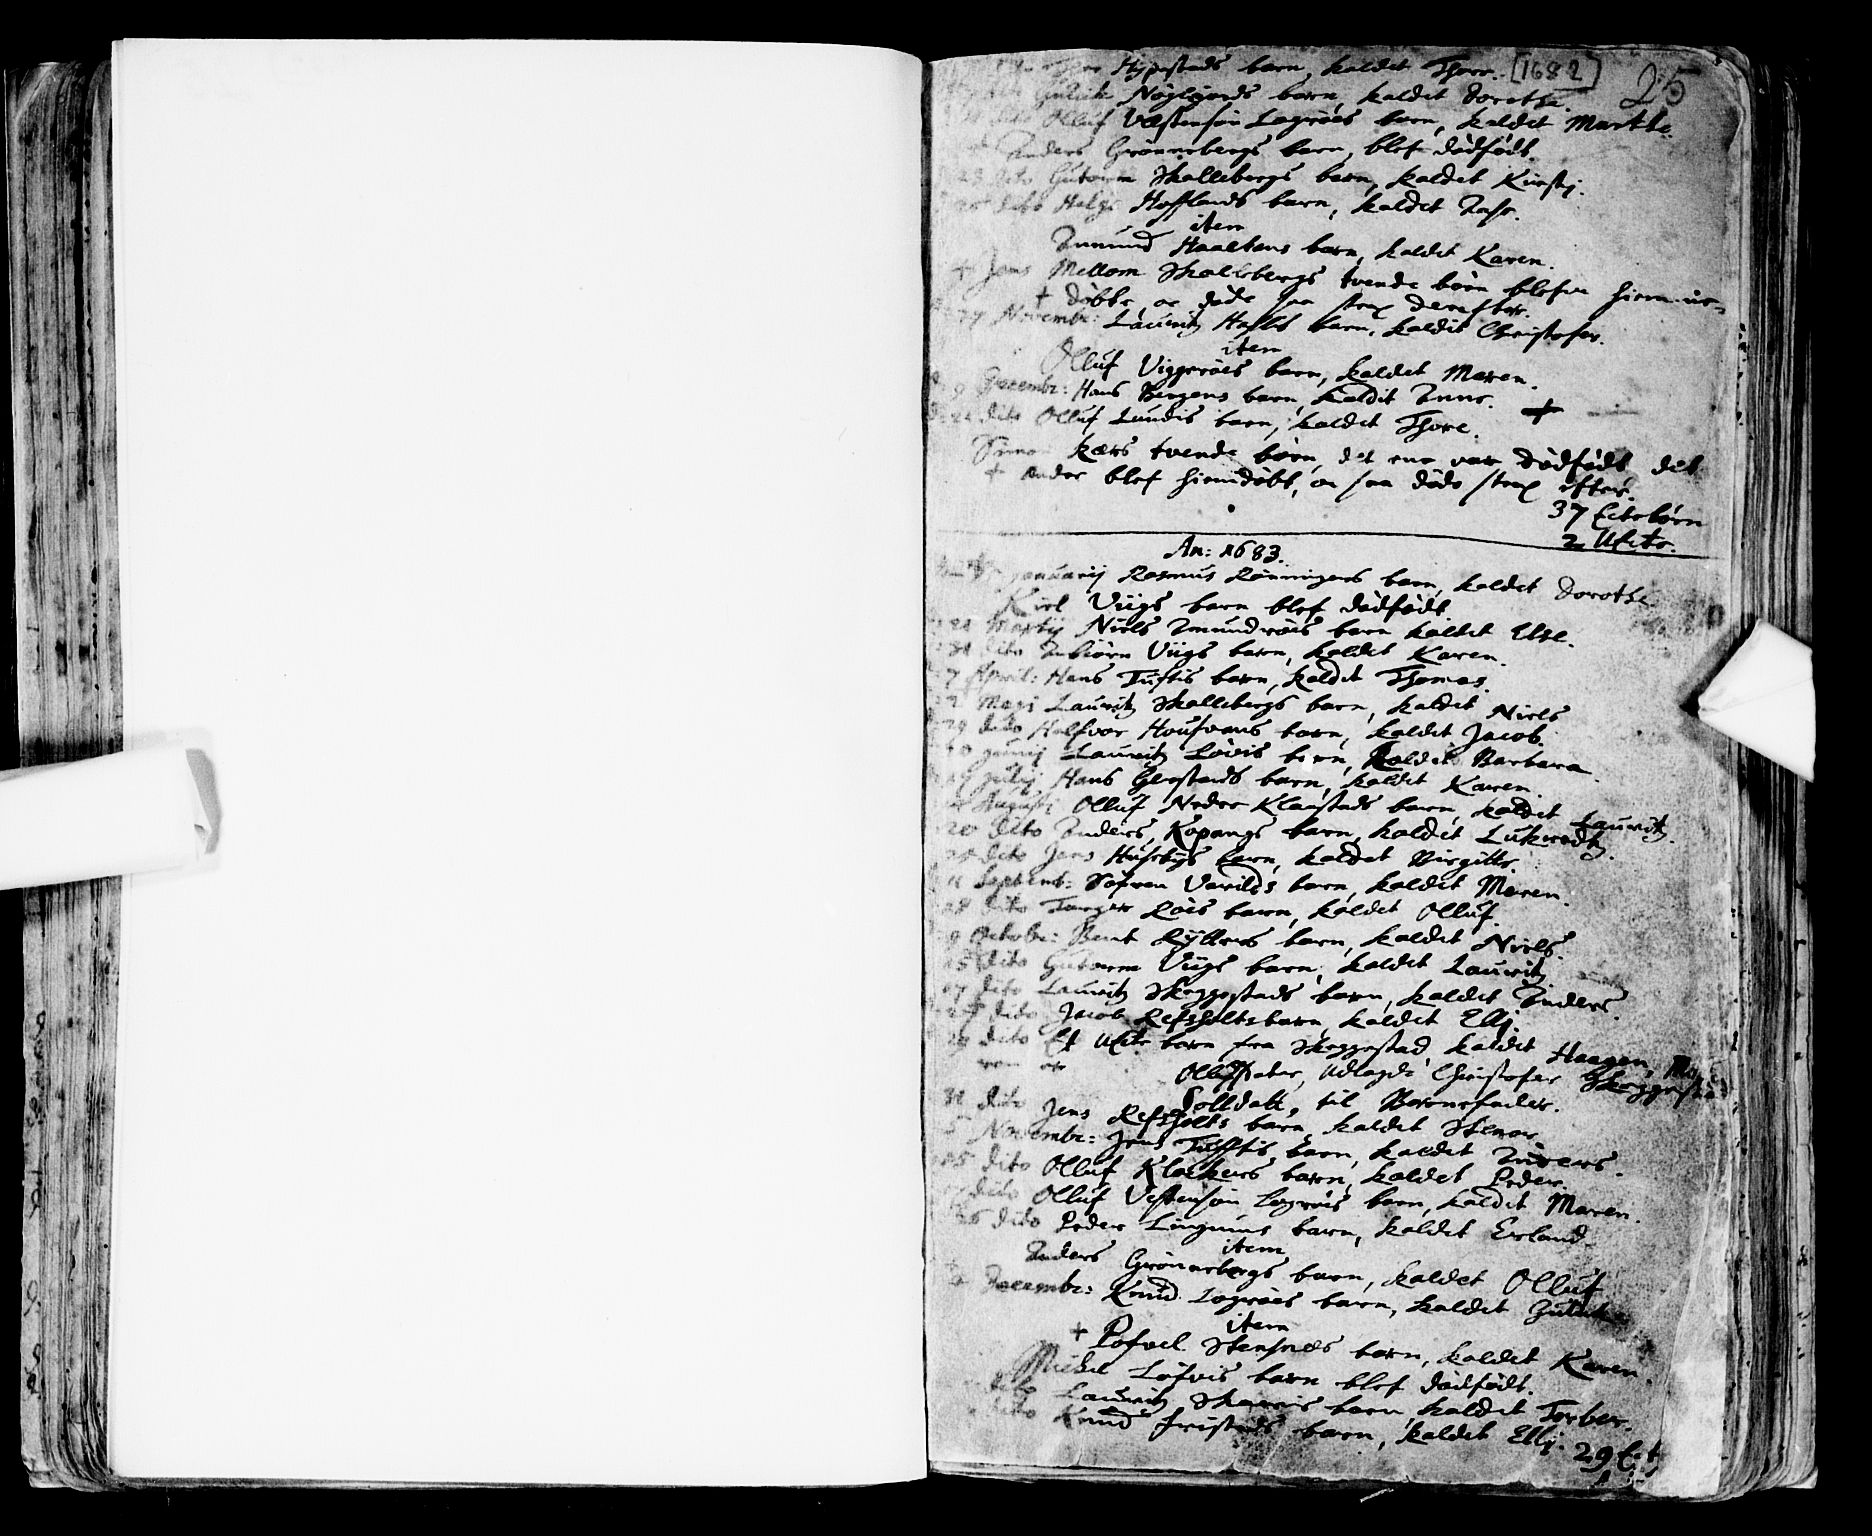 Hyrstads barn, kaldet Thore. [1682] 25
Gulich Nøglegards barn, kaldet Dorothe.
dito Olluf Væstensøn Lagerøes barn, kaldet Marthe.
Anders Grønnebergs barn, blef dødfødt.
23 dito Gutorm Skallebergs barn, kaldet Kirstj.
25 dito Helge Hofflands barn, kaldet
item
Amund Haaltens barn, kaldet Karen.
+ Jens Mellom Skallebergs tvende børn blefve hiemme-
+ døbte, oc døde saa strax derefter.
Novembr: Lauritz Hasles barn, kaldet Christofer.
item
Olluf Viggerøes barn, kaldet Maren.
9 Decembr: Hans Bergens barn, kaldit Anne. +
dito Olluf Lundis barn, kaldet Thore.
Simon Kærs tvende børn, det ene var dødfødt det
+ andet blef hiemdøbt, oc saa døde strax efter.
37 Ectebørn
2 Uecte.
An: 1683.
Januarij Rasmus Rønningens barn, kaldet Dorothe.
Kiel Viigs barn blef dødfødt
Martij Niels Amundrøes barn kaldet Else.
dito Anbiørn Viigs barn, kaldet Karen.
7 April: Hans Tuftis barn, kaldet Thomas.
2 Maji Lauritz Skallebergs barn, kaldet Niels
29 dito Halfvor Houfvans barn, kaldet Jacob.
10 Junij Lauritz Løvis barn, kaldet Barbara.
Julij Hans Gierstads barn, kaldet Karen.
Augusti Olluf Neder Klaastads barn, kaldet Lauritz.
20 dito Anders Kopangs barn, kaldet Lukredtz.
dito Jens Husebys barn, kaldet Birgitte.
11 Septemb: Søfren Varilds barn, kaldet Maren.
28 dito Torger Røes barn, kaldet Olluf.
9 Octobr: Bent Ryllens barn, kaldet Niels.
15 dito Gutorm Viigs barn, kaldet Lauritz
17 dito Lauritz Skeggestads barn, kaldet Anders.
dito Jacob Refsholts barn, kaldet Elli.
29 dito Et Uecte barn fra Skeggestad, kaldet Haagen,
Ollufsdater, Udlagde Christofer Skeggestad
Solldatt, til Barnefader.
31 dito Jens Refsholts barn kaldet Stenor.
5 Novembr: Jens Tufftis barn, kaldet Anders.
15 dito Olluf Klockers barn, kaldet Peder.
dito Olluf Vestensøn Lagerøes barn, kaldit Maren.
26 dito Peder Lingums barn, kaldet Erland.
item
Anders Grønnebergs barn, kaldet Olluf
Decembr: Knud Lagerøes barn, kaldet Gulich
item
+ Pofvel Stensnes barn, kaldet Karen.
Mickel Løfvis barn blef dødfødt.
dito Lauritz Skarris barn, kaldet Torber.
dito Knud Frestads barn, kaldet Ellj.
29 Ect
1